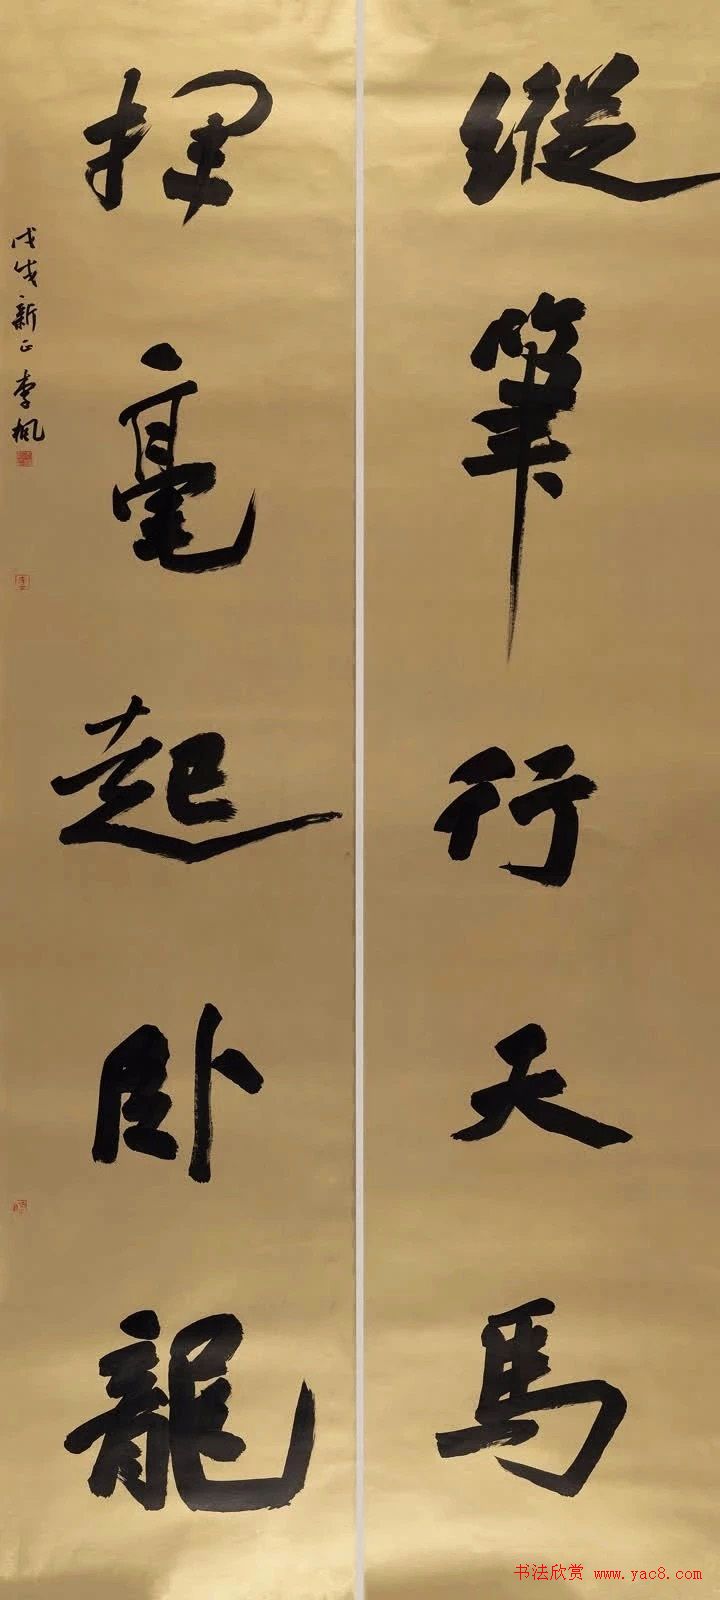 縱筆行天馬
揮毫起卧龍
戊戌新正李楓
书法欣赏 www.yac8.com